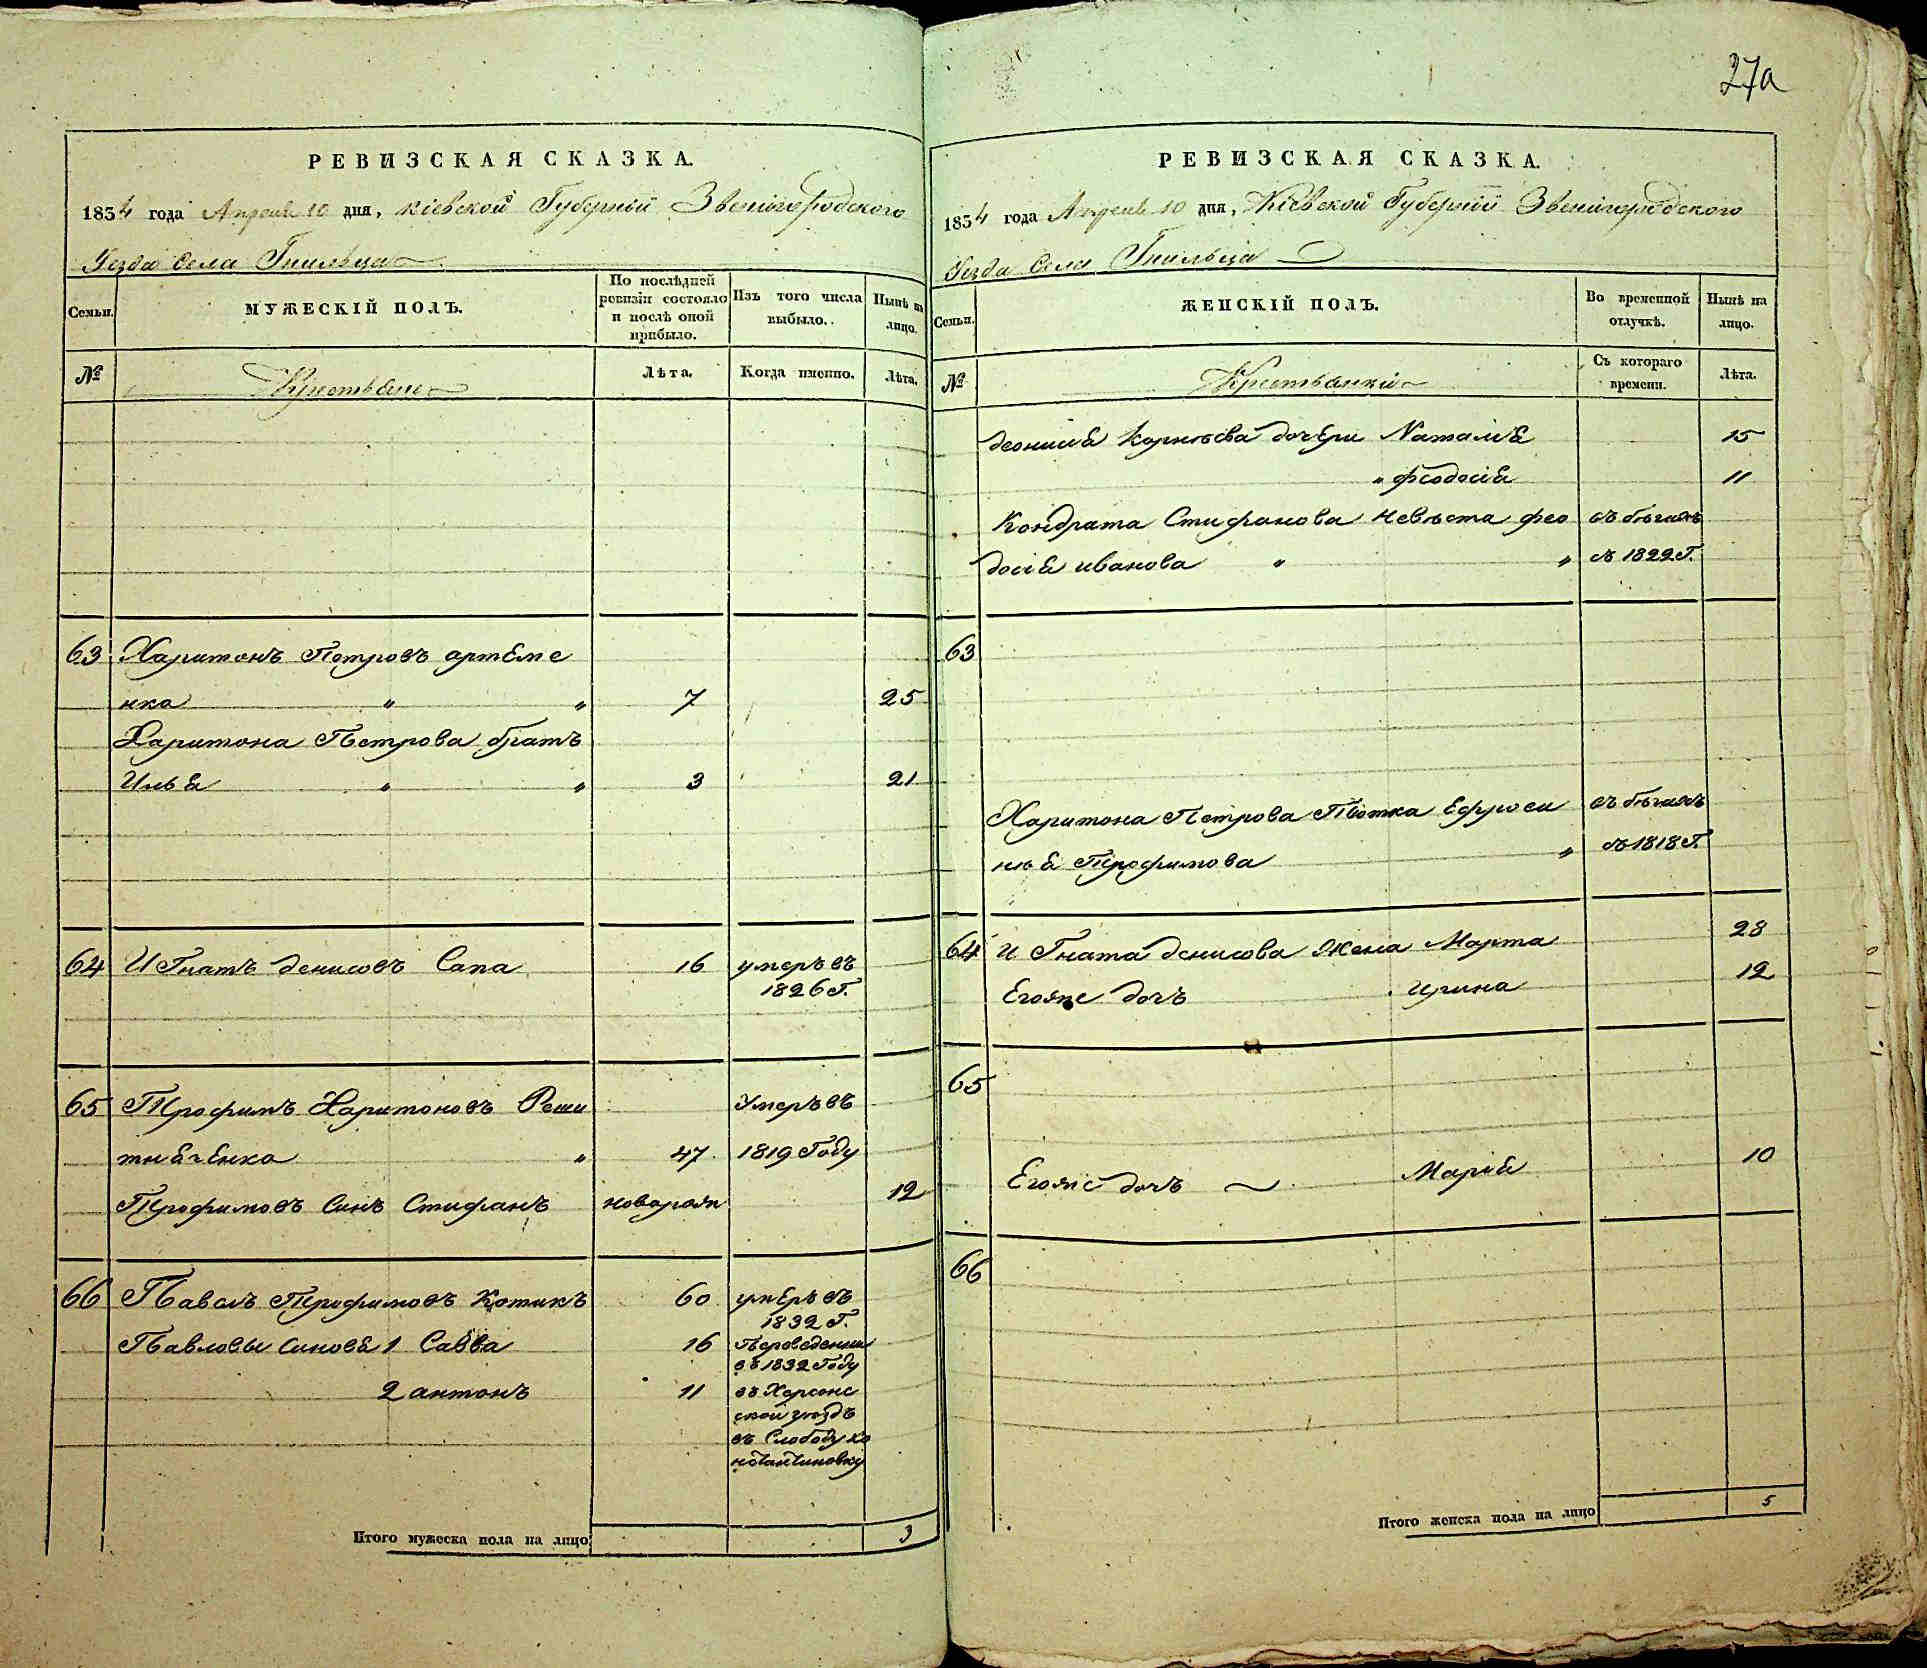 27а
РЕВИЗСКАЯ СКАЗКА.
1834 года Апреля 10 дня, Кіевской Губерніи Звенигородского
Уезда Села Гнильца
Семьи.
МУЖЕСКІЙ ПОЛЪ.
По послѣдней ревизіи состояло и послѣ оной прибыло.
Изъ того числа выбыло.
Нынѣ на лицо.
№
Крестьяне
Лѣта.
Когда именно.
Лѣта.
63 Харитонъ Петровъ артеме
нка " " 7 25
Харитона Петрова братъ
Илья " " 3 21
64 Игнатъ денисовъ Сапа 16 умеръ въ
1826 Г.
65 Трофимъ Харитоновъ Реши
тняченка " 47 Умеръ въ
1819 Году
Трофимовъ Синъ Стифанъ новорож 12
66 Павелъ Трофимовъ Котикъ 60 умеръ въ
1832 Г.
Павловы Синовя 1 Савва 16 Переведенни
въ 1832 Году
2 антонъ 11 въ Херсонс
кой уездъ
въ Слободу ко
нстантиновку
Итого мужеска пола на лицо 3
РЕВИЗСКАЯ СКАЗКА.
1834 года Апреля 10 дня, Кіевской Губерніи Звенигородского
Уезда Села Гнильца
Семьи.
ЖЕНСКІЙ ПОЛЪ.
Во временной отлучкѣ.
Нынѣ на лицо.
№
Крестьянки
Съ котораго времени.
Лѣта.
деонисія Корнѣева дочери Наталія 15
" феодосія 11
Кондрата Стифанова невѣста фео въ бѣгахъ
досія иванова " " съ 1822 Г.
63
Харитона Петрова Тіотка Ефроси въ бѣгахъ
нія Трофимова " съ 1818 Г.
64 Игната денисова Жена Марта 28
Егояже дочъ Ирина 12
65
Егояже дочъ Марія 10
66
Итого женска пола на лицо 5